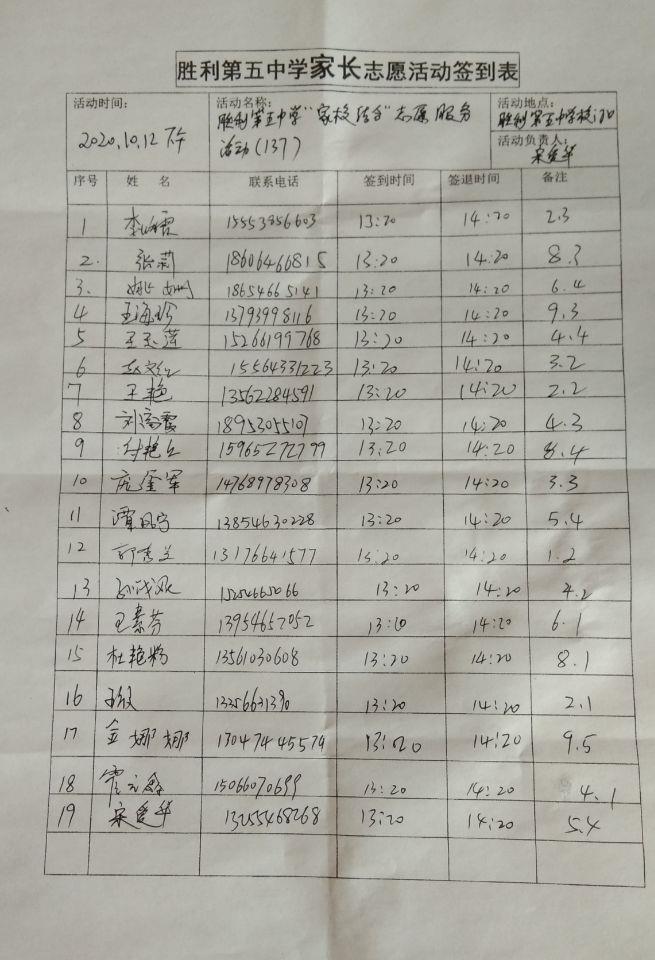 胜利第五中学家长志愿活动签到表
活动时间: 2020.10.12 下午
活动名称: 胜利第五中学“家校结合”志愿服务
活动(137)
活动地点: 胜利第五中学校门口
活动负责人: 宋爱华
序号 姓 名 联系电话 签到时间 签退时间 备注
1 15553856603 13:20 14:20 2.3
2. 张莉 18606466815 13:20 14:20 8.3
3. 18654665141 13:20 14:20 6.4
4 王海珍 13793998116 13:20 14:20 9.3
5 王玉莲 15266199768 13:20 14:20 4.4
6 赵文红 15564331223 13:20 14:20 3.2
7 王艳 13562284591 13:20 14:20 2.2
8 刘高霞 18953055107 13:20 14:20 4.3
9 付艳丘 15965272799 13:20 14:20 8.4
10 14768978308 13:20 14:20 3.3
11 谭风宇 13854630228 13:20 14:20 5.4
12 郭秀兰 13176641577 13:20 14:20 1.2
13 15254665066 13:20 14:20 4.2
14 王素芬 13954657052 13:20 14:20 6.1
15 杜艳粉 13561030608 13:20 14:20 8.1
16 13356631390 13:20 14:20 2.1
17 金娜娜 13047445579 13:20 14:20 9.5
18 15066070699 13:20 14:20 4.1
19 宋爱华 13255468268 13:20 14:20 5.4